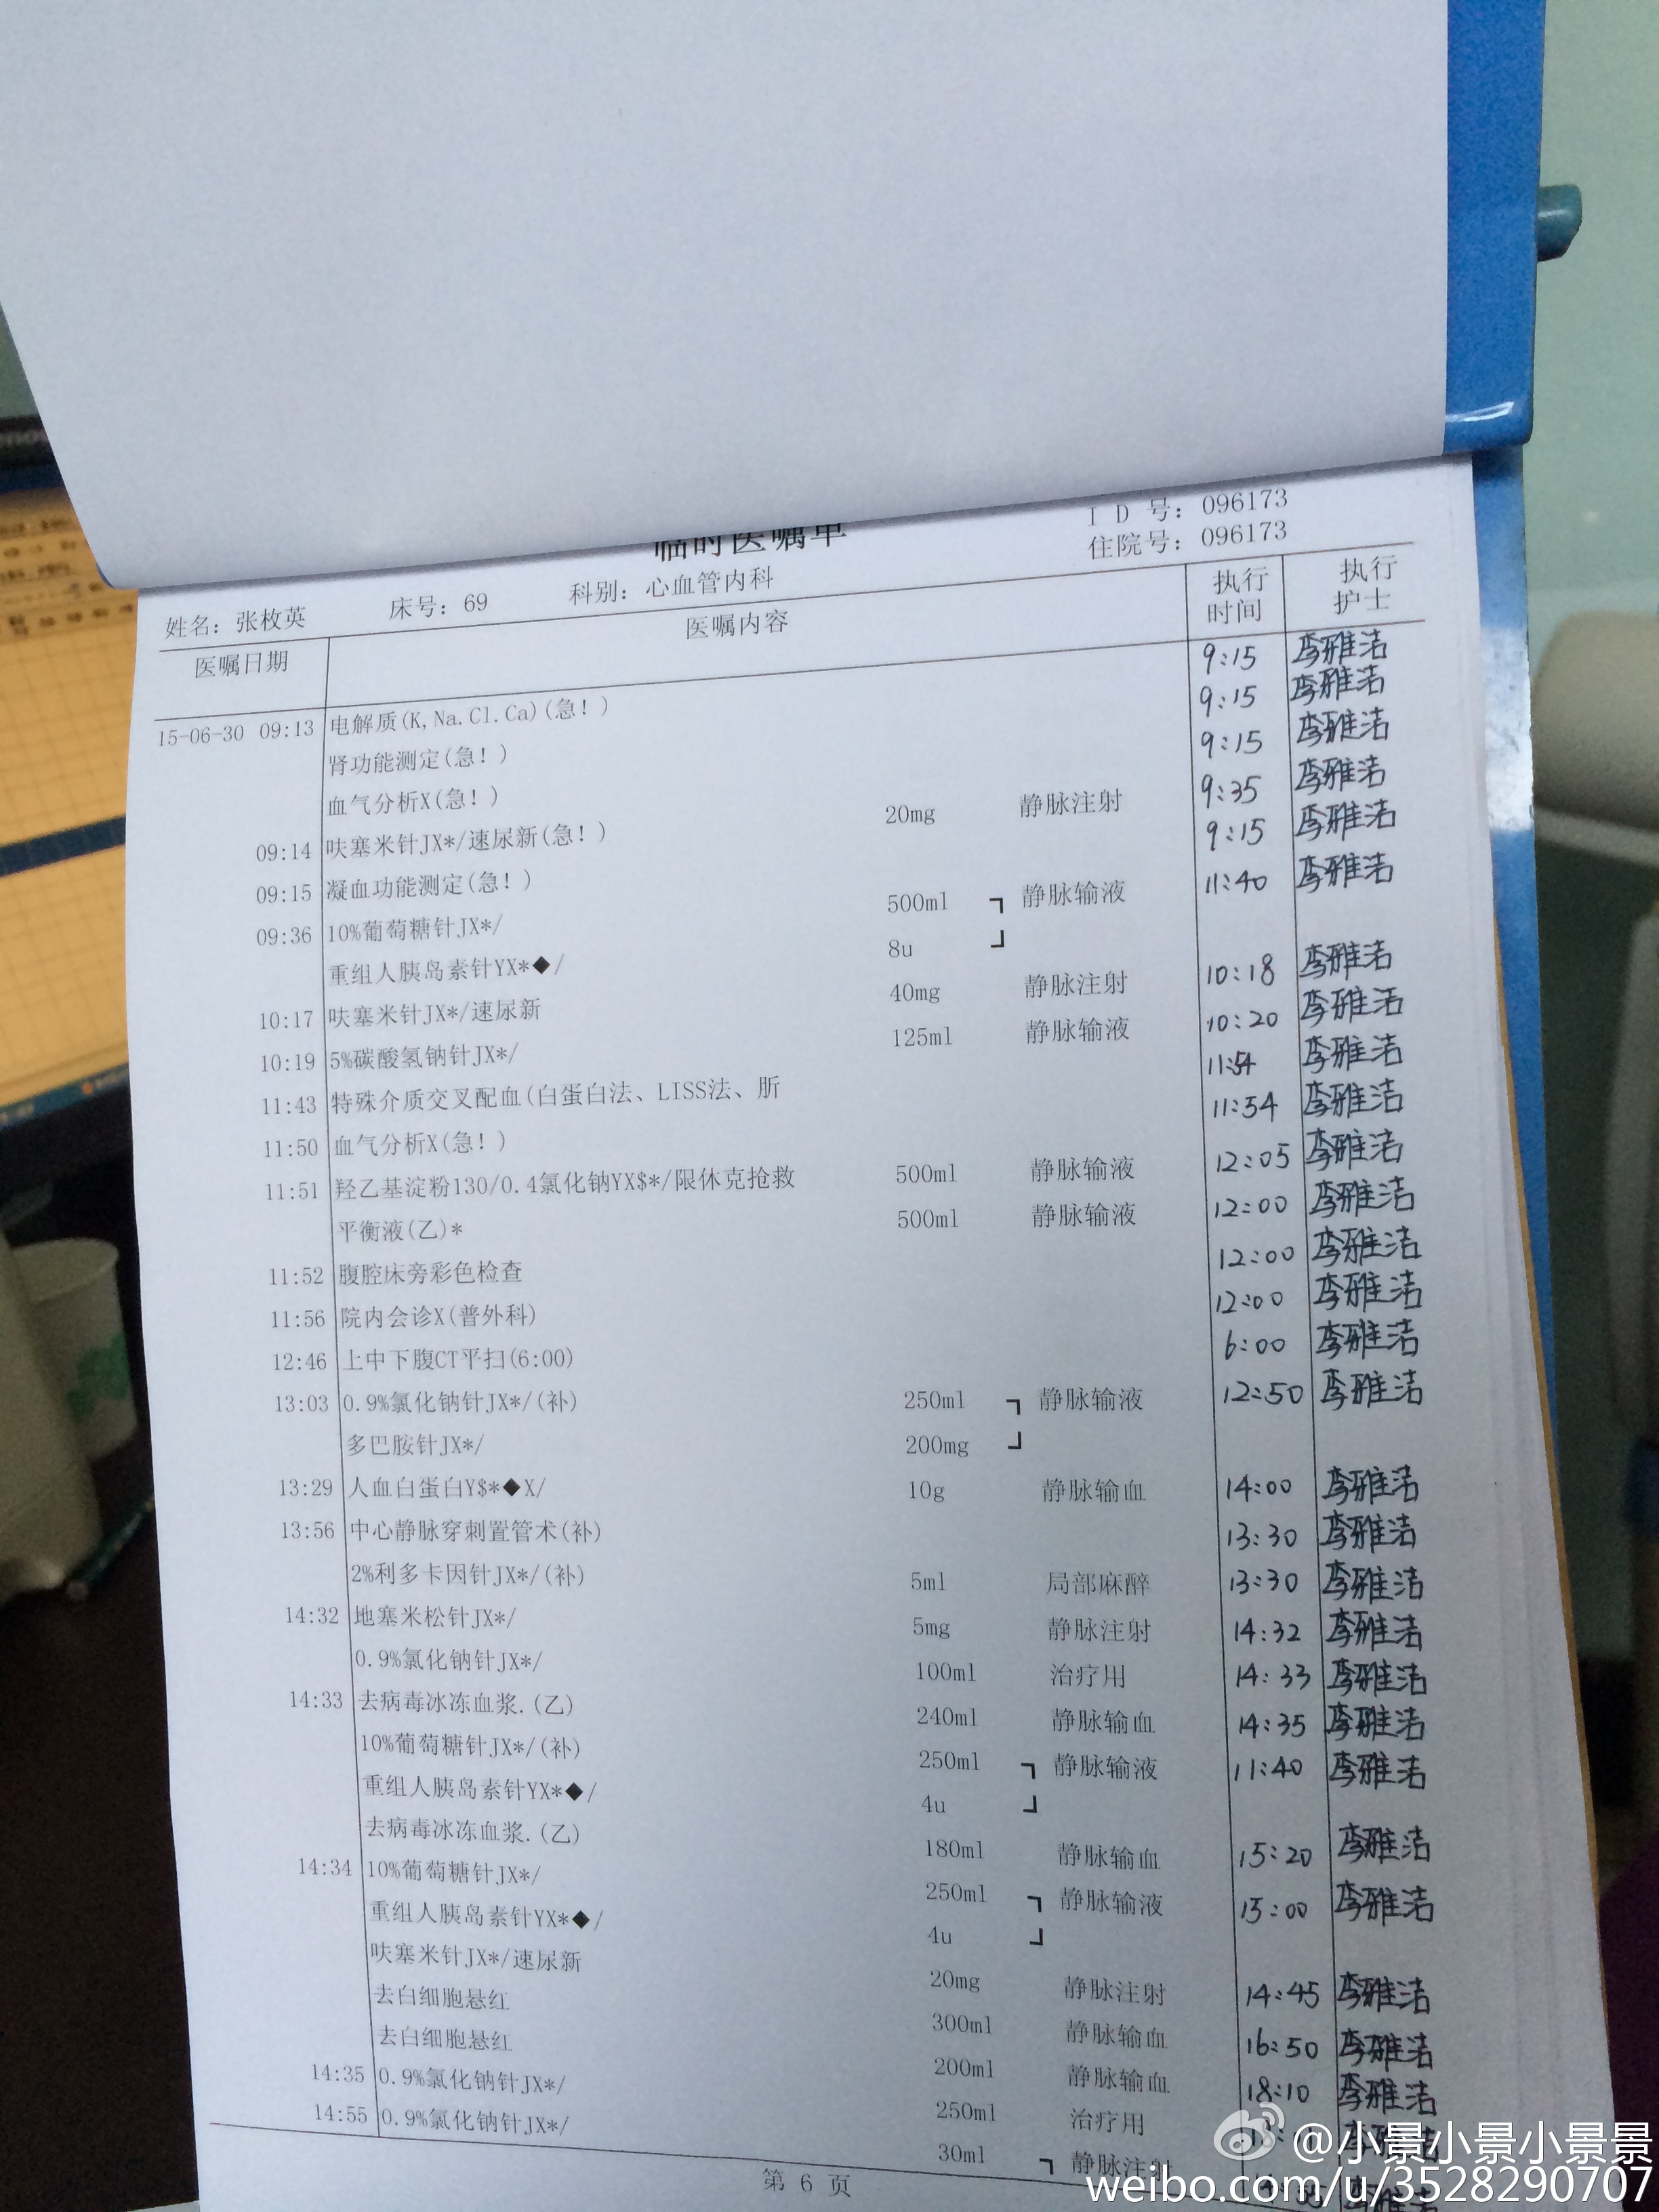 临时医嘱单
I D 号: 096173
住院号: 096173
姓名: 张枚英 床号: 69 科别: 心血管内科
医嘱日期 医嘱内容 执行时间 执行护士
15-06-30 09:13 电解质(K,Na.Cl.Ca)(急!) 9:15 李雅洁
肾功能测定(急!) 9:15 李雅洁
血气分析X(急!) 9:15 李雅洁
09:14 呋塞米针JX*/速尿新(急!) 20mg 静脉注射 9:35 李雅洁
09:15 凝血功能测定(急!) 9:15 李雅洁
09:36 10%葡萄糖针JX*/ 500ml ┐ 静脉输液 11:40 李雅洁
重组人胰岛素针YX*◆/ 8u ┘
10:17 呋塞米针JX*/速尿新 40mg 静脉注射 10:18 李雅洁
10:19 5%碳酸氢钠针JX*/ 125ml 静脉输液 10:20 李雅洁
11:43 特殊介质交叉配血(白蛋白法、LISS法、肵 11:54 李雅洁
11:50 血气分析X(急!) 11:54 李雅洁
11:51 羟乙基淀粉130/0.4氯化钠YX$*/限休克抢救 500ml 静脉输液 12:05 李雅洁
平衡液(乙)* 500ml 静脉输液 12:00 李雅洁
11:52 腹腔床旁彩色检查 12:00 李雅洁
11:56 院内会诊X(普外科) 12:00 李雅洁
12:46 上中下腹CT平扫(6:00) 6:00 李雅洁
13:03 0.9%氯化钠针JX*/(补) 250ml ┐ 静脉输液 12:50 李雅洁
多巴胺针JX*/ 200mg ┘
13:29 人血白蛋白Y$*◆X/ 10g 静脉输血 14:00 李雅洁
13:56 中心静脉穿刺置管术(补) 13:30 李雅洁
2%利多卡因针JX*/(补) 5ml 局部麻醉 13:30 李雅洁
14:32 地塞米松针JX*/ 5mg 静脉注射 14:32 李雅洁
0.9%氯化钠针JX*/ 100ml 治疗用 14:33 李雅洁
14:33 去病毒冰冻血浆.(乙) 240ml 静脉输血 14:35 李雅洁
10%葡萄糖针JX*/(补) 250ml ┐ 静脉输液 11:40 李雅洁
重组人胰岛素针YX*◆/ 4u ┘
去病毒冰冻血浆.(乙) 180ml 静脉输血 15:20 李雅洁
14:34 10%葡萄糖针JX*/ 250ml ┐ 静脉输液 15:00 李雅洁
重组人胰岛素针YX*◆/ 4u ┘
呋塞米针JX*/速尿新 20mg 静脉注射 14:45 李雅洁
去白细胞悬红 300ml 静脉输血 16:50 李雅洁
去白细胞悬红 200ml 静脉输血 18:10 李雅洁
14:35 0.9%氯化钠针JX*/ 250ml 治疗用
14:55 0.9%氯化钠针JX*/ 30ml ┐ 静脉注射
第 6 页
@小景小景小景景
weibo.com/u/3528290707